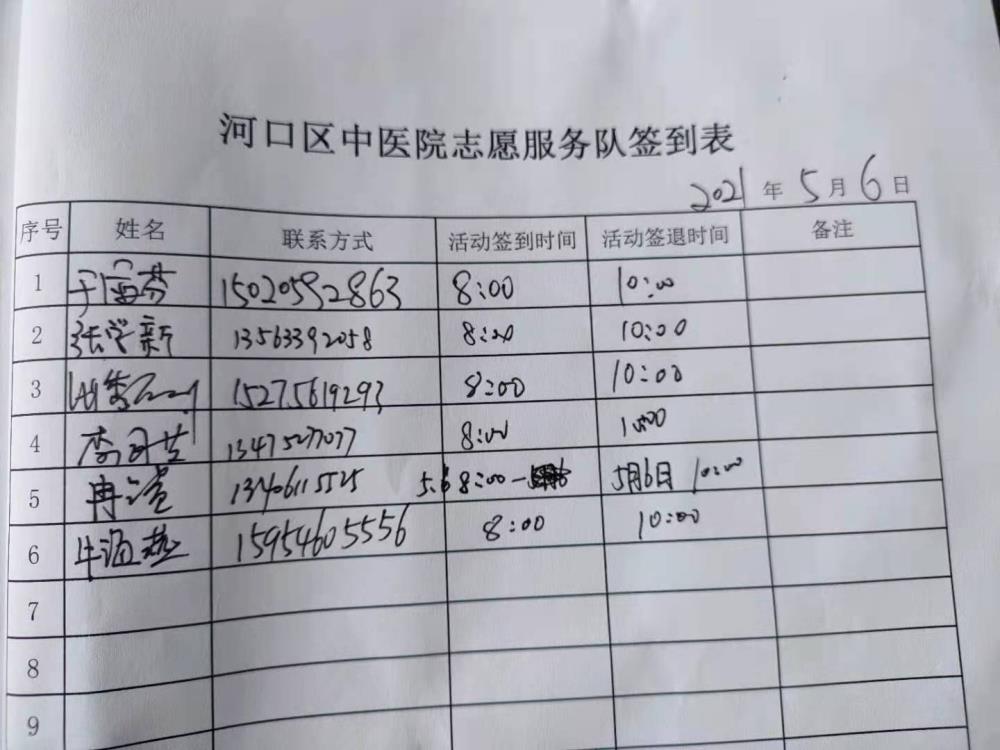 河口区中医院志愿服务队签到表
2021年5月6日
序号 姓名 联系方式 活动签到时间 活动签退时间 备注
1 于 芬 15020592863 8:00 10:00
2 张学新 13563392058 8:00 10:00
3 15275619293 8:00 10:00
4 李 13475277077 8:00 10:00
5 冉 13406115525 5.6 8:00- 5月6日 10:00
6 牛海燕 15954605556 8:00 10:00
7
8
9